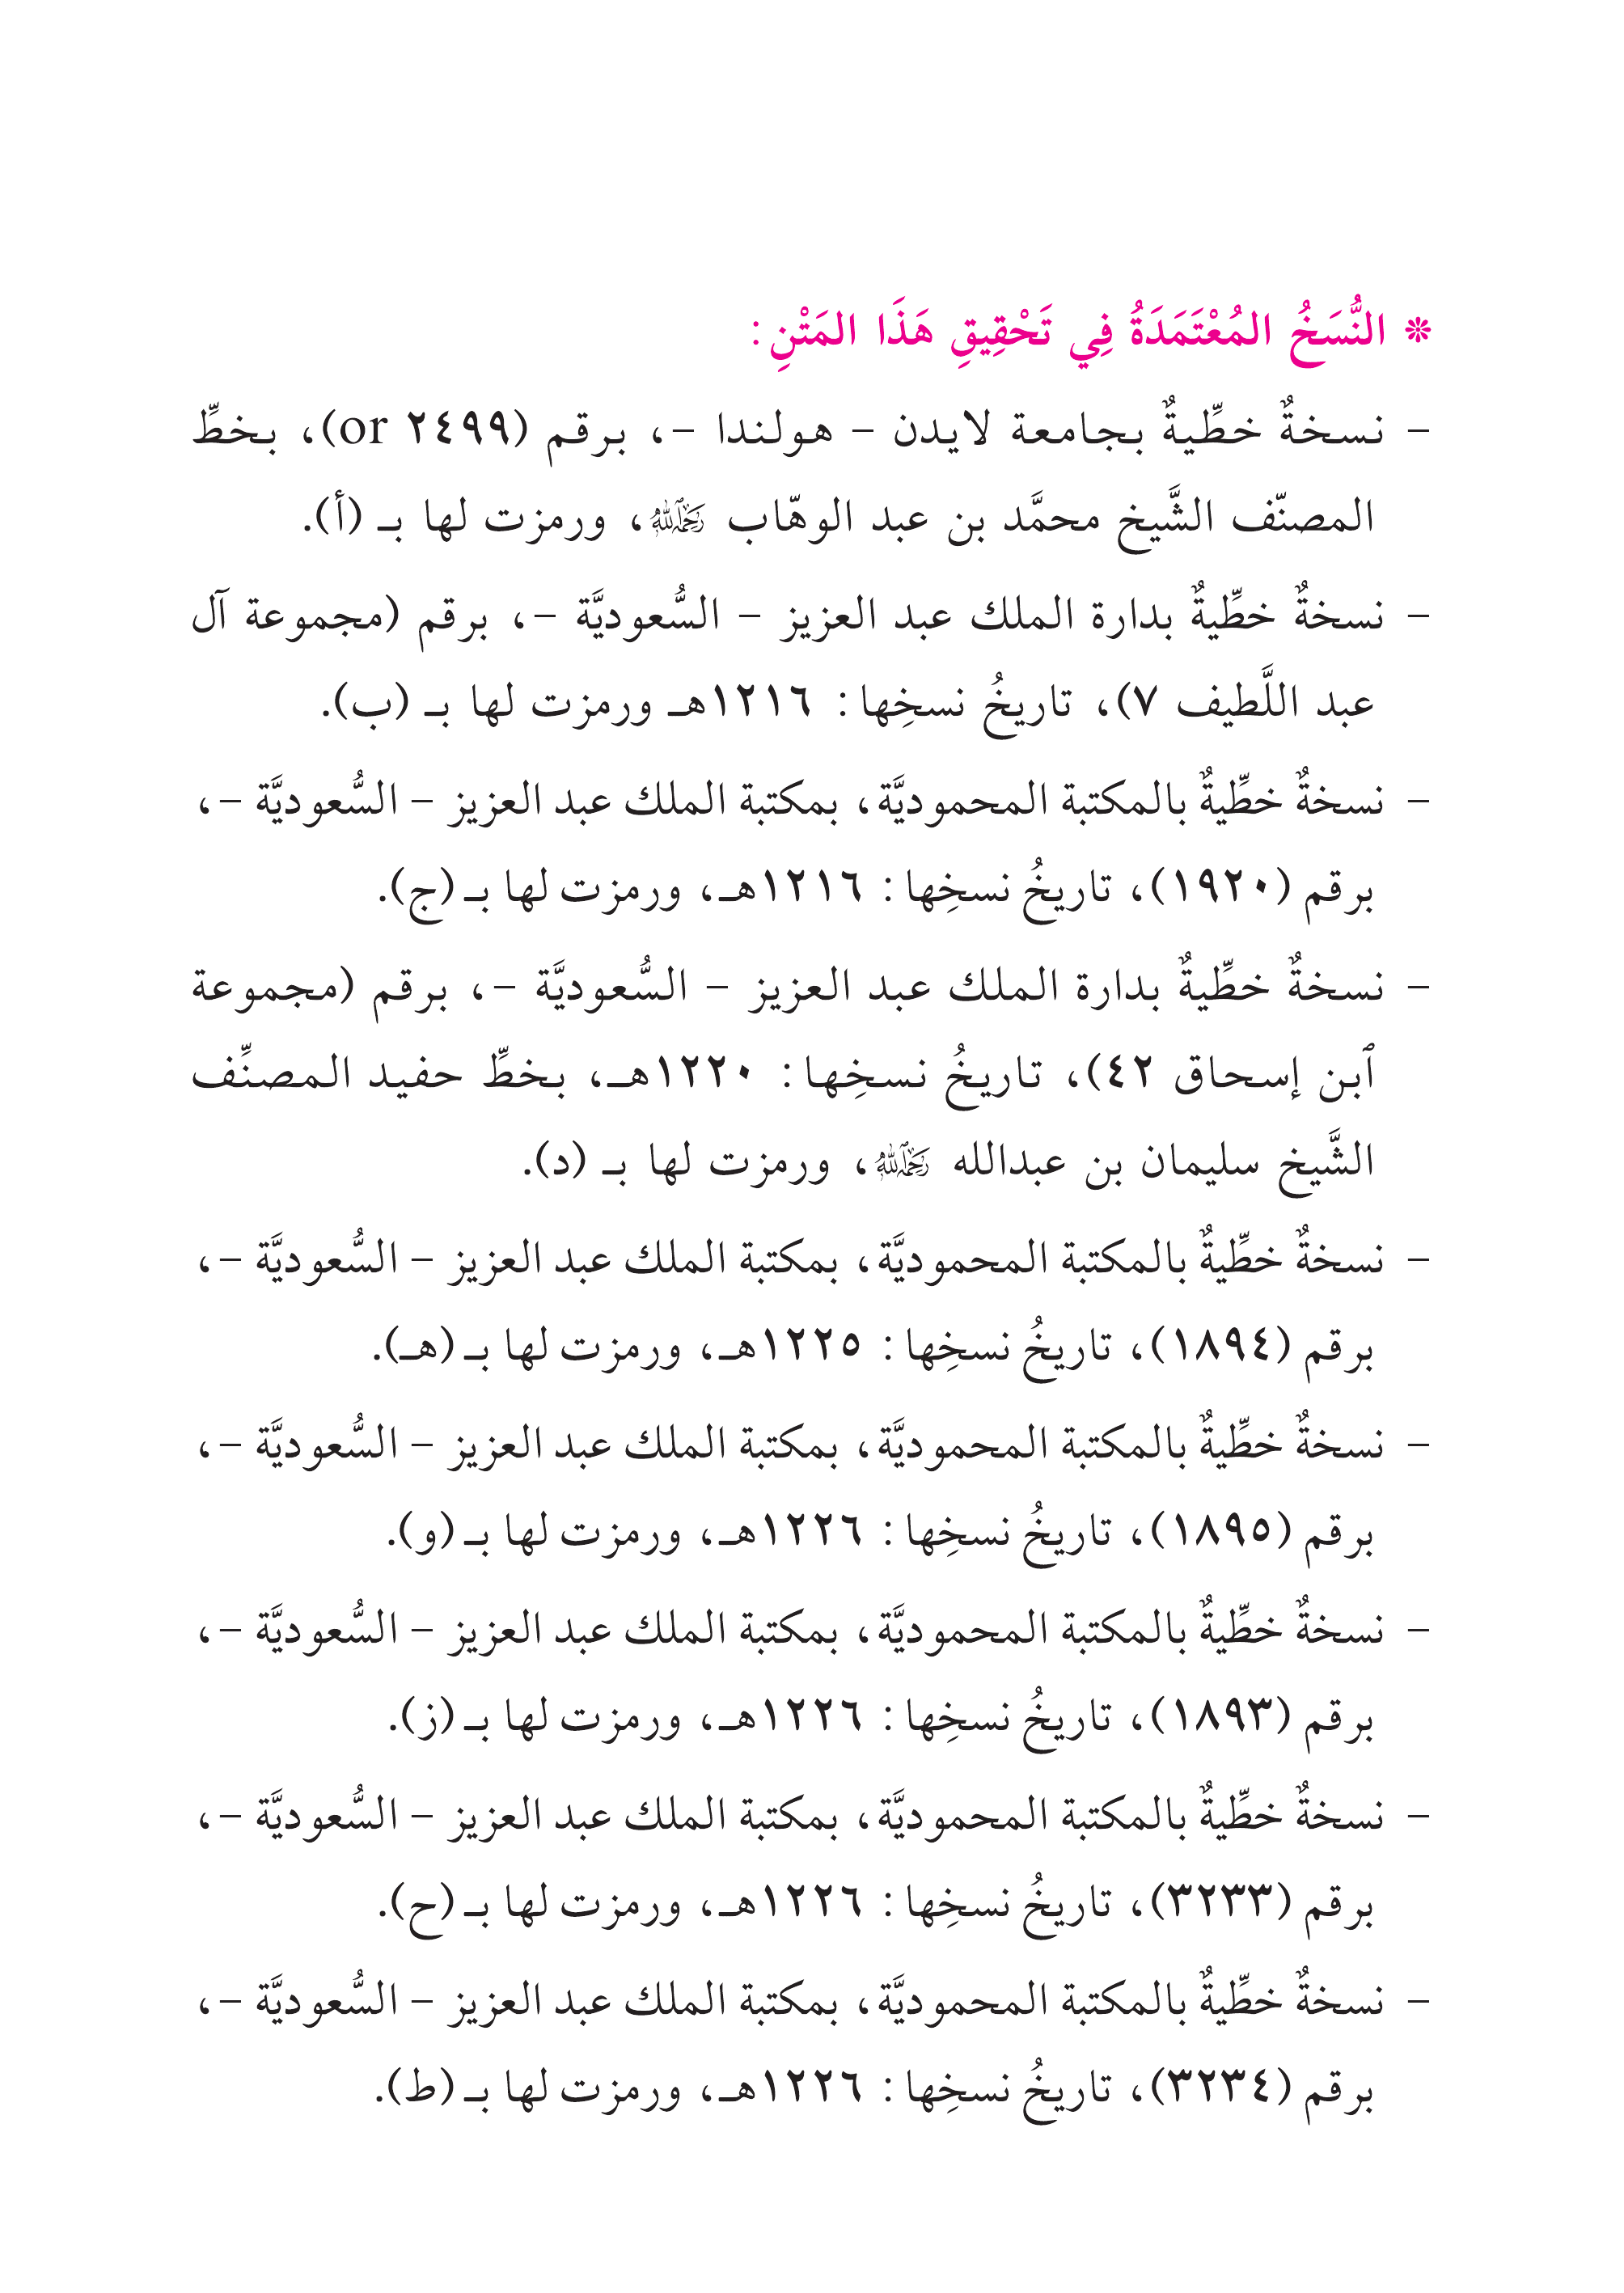 ❊ النُّسَخُ المُعْتَمَدَةُ فِي تَحْقِيقِ هَذَا المَتْنِ:
- نسخةٌ خطِّيةٌ بجامعة لايدن - هولندا -، برقم (or ٢٤٩٩)، بخطِّ
المصنّف الشَّيخ محمَّد بن عبد الوهّاب رحمه الله، ورمزت لها بـ (أ).
- نسخةٌ خطِّيةٌ بدارة الملك عبد العزيز - السُّعوديَّة -، برقم (مجموعة آل
عبد اللَّطيف ٧)، تاريخُ نسخِها: ١٢١٦هـ ورمزت لها بـ (ب).
- نسخةٌ خطِّيةٌ بالمكتبة المحموديَّة، بمكتبة الملك عبد العزيز - السُّعوديَّة -،
برقم (١٩٢٠)، تاريخُ نسخِها: ١٢١٦هـ، ورمزت لها بـ (ج).
- نسخةٌ خطِّيةٌ بدارة الملك عبد العزيز - السُّعوديَّة -، برقم (مجموعة
ٱبن إسحاق ٤٢)، تاريخُ نسخِها: ١٢٢٠هـ، بخطِّ حفيد المصنِّف
الشَّيخ سليمان بن عبدالله رحمه الله، ورمزت لها بـ (د).
- نسخةٌ خطِّيةٌ بالمكتبة المحموديَّة، بمكتبة الملك عبد العزيز - السُّعوديَّة -،
برقم (١٨٩٤)، تاريخُ نسخِها: ١٢٢٥هـ، ورمزت لها بـ (هـ).
- نسخةٌ خطِّيةٌ بالمكتبة المحموديَّة، بمكتبة الملك عبد العزيز - السُّعوديَّة -،
برقم (١٨٩٥)، تاريخُ نسخِها: ١٢٢٦هـ، ورمزت لها بـ (و).
- نسخةٌ خطِّيةٌ بالمكتبة المحموديَّة، بمكتبة الملك عبد العزيز - السُّعوديَّة -،
برقم (١٨٩٣)، تاريخُ نسخِها: ١٢٢٦هـ، ورمزت لها بـ (ز).
- نسخةٌ خطِّيةٌ بالمكتبة المحموديَّة، بمكتبة الملك عبد العزيز - السُّعوديَّة -،
برقم (٣٢٣٣)، تاريخُ نسخِها: ١٢٢٦هـ، ورمزت لها بـ (ح).
- نسخةٌ خطِّيةٌ بالمكتبة المحموديَّة، بمكتبة الملك عبد العزيز - السُّعوديَّة -،
برقم (٣٢٣٤)، تاريخُ نسخِها: ١٢٢٦هـ، ورمزت لها بـ (ط).